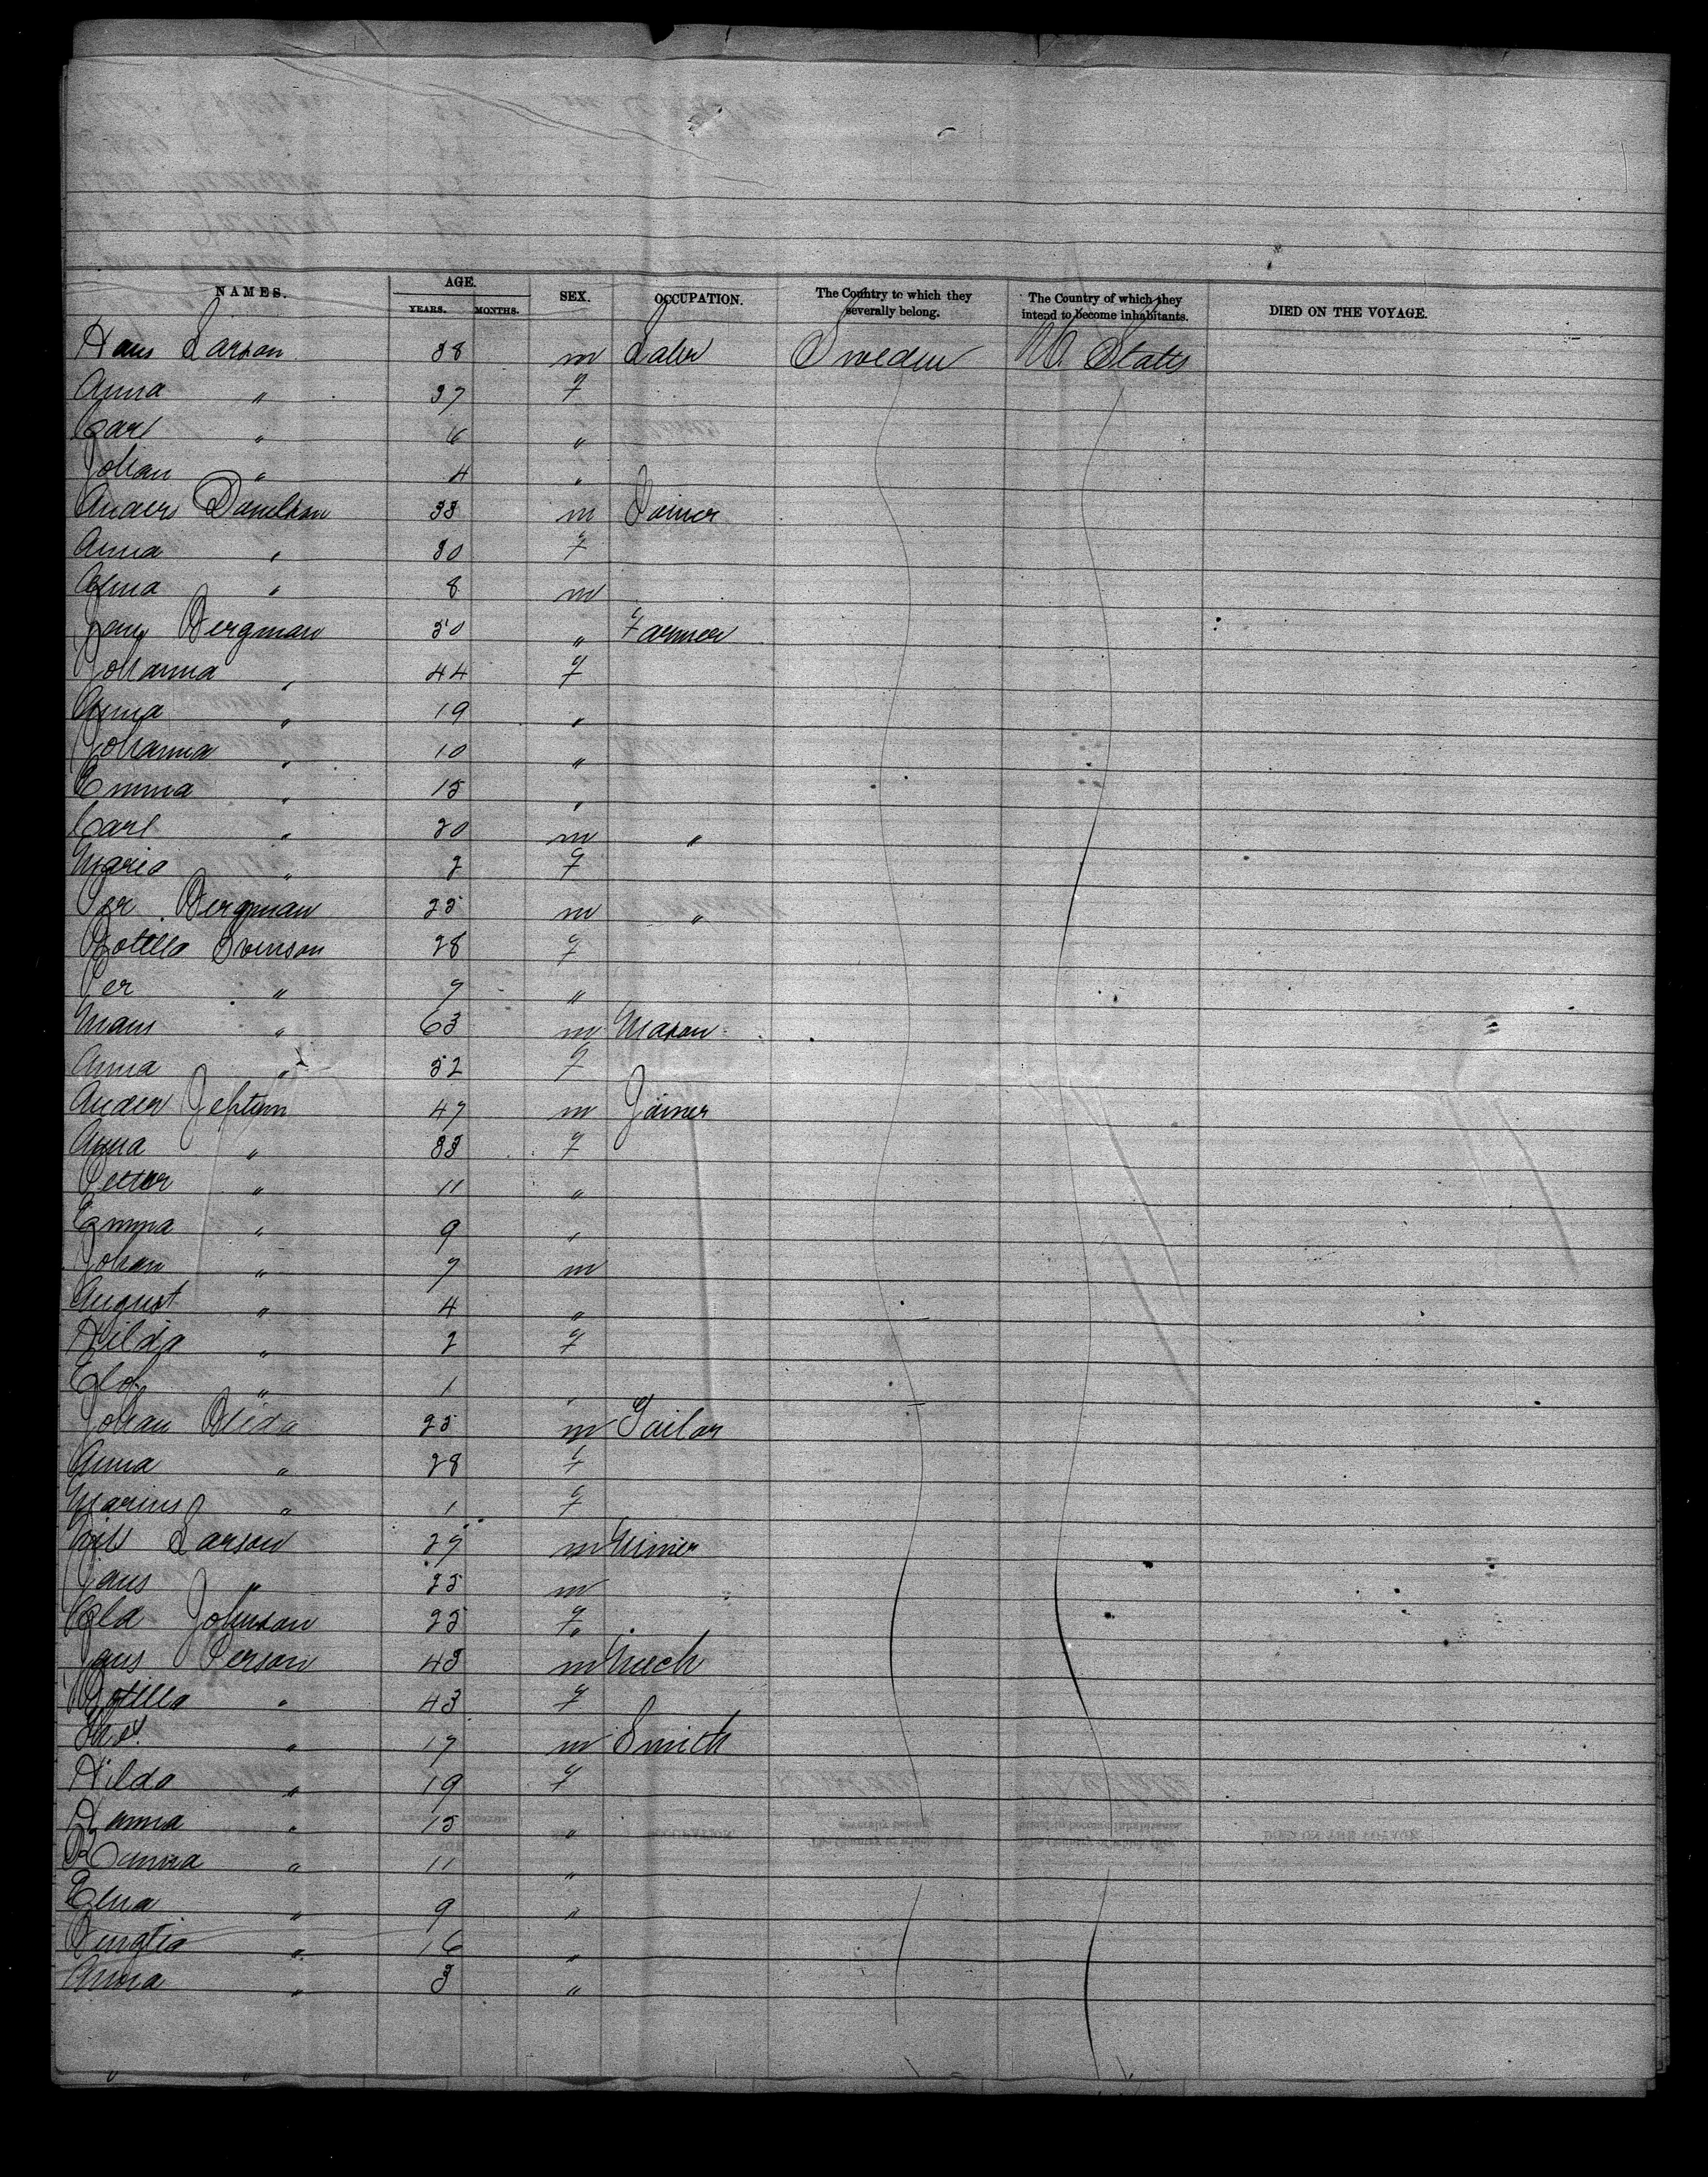 NAMES. AGE. YEARS. MONTHS. SEX. OCCUPATION. The Country to which they severally belong. The Country of which they intend to become inhabitants. DIED ON THE VOYAGE.
Hans Larson 38 m Labr Sweden U. States
Anna " 37 f
Carl " 6 "
Johan " 4 "
Anders Danielson 33 m Joiner
Anna " 30 f
Alma " 8 m
Jans Bergman 50 " Farmer
Johanna " 44 f
Anna " 19 "
Johanna " 10 "
Emma " 15 "
Carl " 20 m "
Maria " 2 f
Per Bergman 25 m "
Botilla Svenson 28 f
Per " 7 "
Mans " 63 m Mason
Anna " 52 f
Anders 47 m Joiner
Anna " 33 f
Petter " 11 "
Emma " 9 "
Johan " 7 m
August " 4 "
Hilda " 2 f
Elof " 1 "
Johan 25 m Tailor
Anna " 28 f
Marius " 1 f
Nils Larson 27 m Miner
Jans " 25 m
Ola Johnson 25 f
Jans Person 43 m Mech
Botilla " 43 f
" 17 m Smith
Hilda " 19 f
Hanna " 15 "
" 11 "
Elna " 9 "
Bengta " 16 "
Anna " 3 "